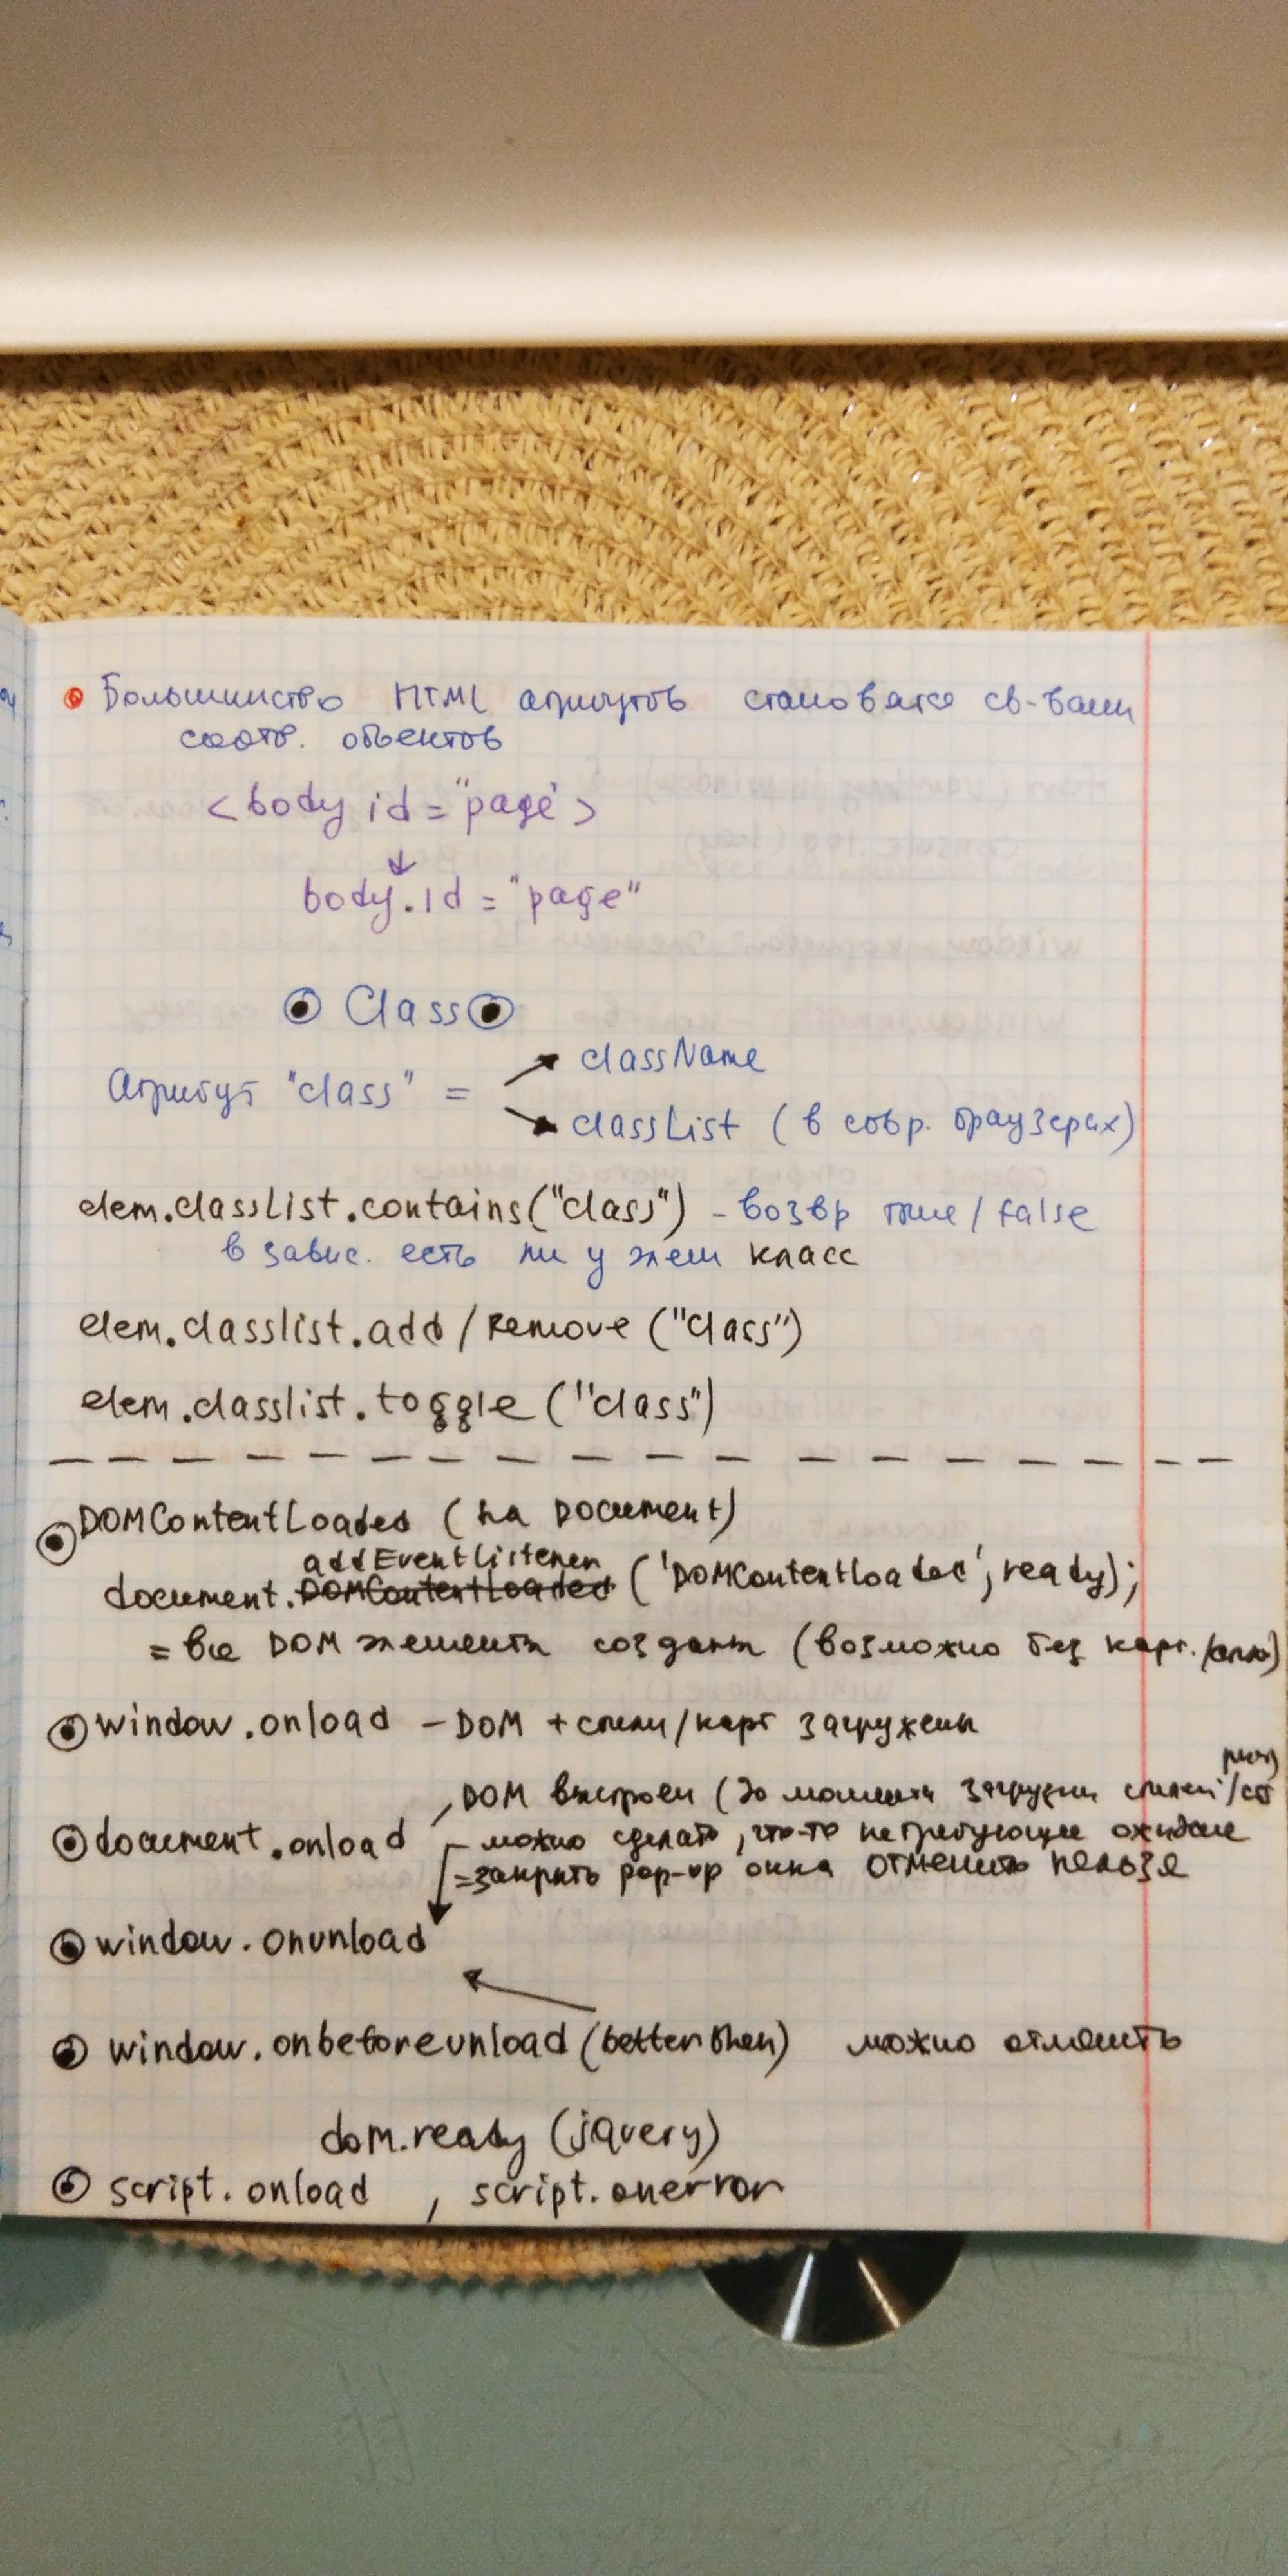 Большинство HTML атрибутов становятся св-вами
соотв. объектов
<body id="page">
↓
body.id = "page"
Class
Атрибут "class" =
className
classList (в совр. браузерах)
elem.classList.contains("class") - возвр true/false
в завис. есть ли у элем класс
elem.classlist.add/remove ("class")
elem.classlist.toggle ("class")
DOMContentLoaded (на Document)
addEventListener
document. DOMContentLoaded ('DOMContentLoaded', ready);
= все DOM элементы созданы (возможно без карт./стил)
window.onload - DOM + стили/карт загружены
DOM выстроен (до момента загрузки стилей/
document.onload
- можно сделать, что-то не требующее ожидане
= закрыть pop-up окна отменить нельзя
window.onunload
window.onbeforeunload (better then) можно отменить
dom.ready (jquery)
script.onload , script.onerror